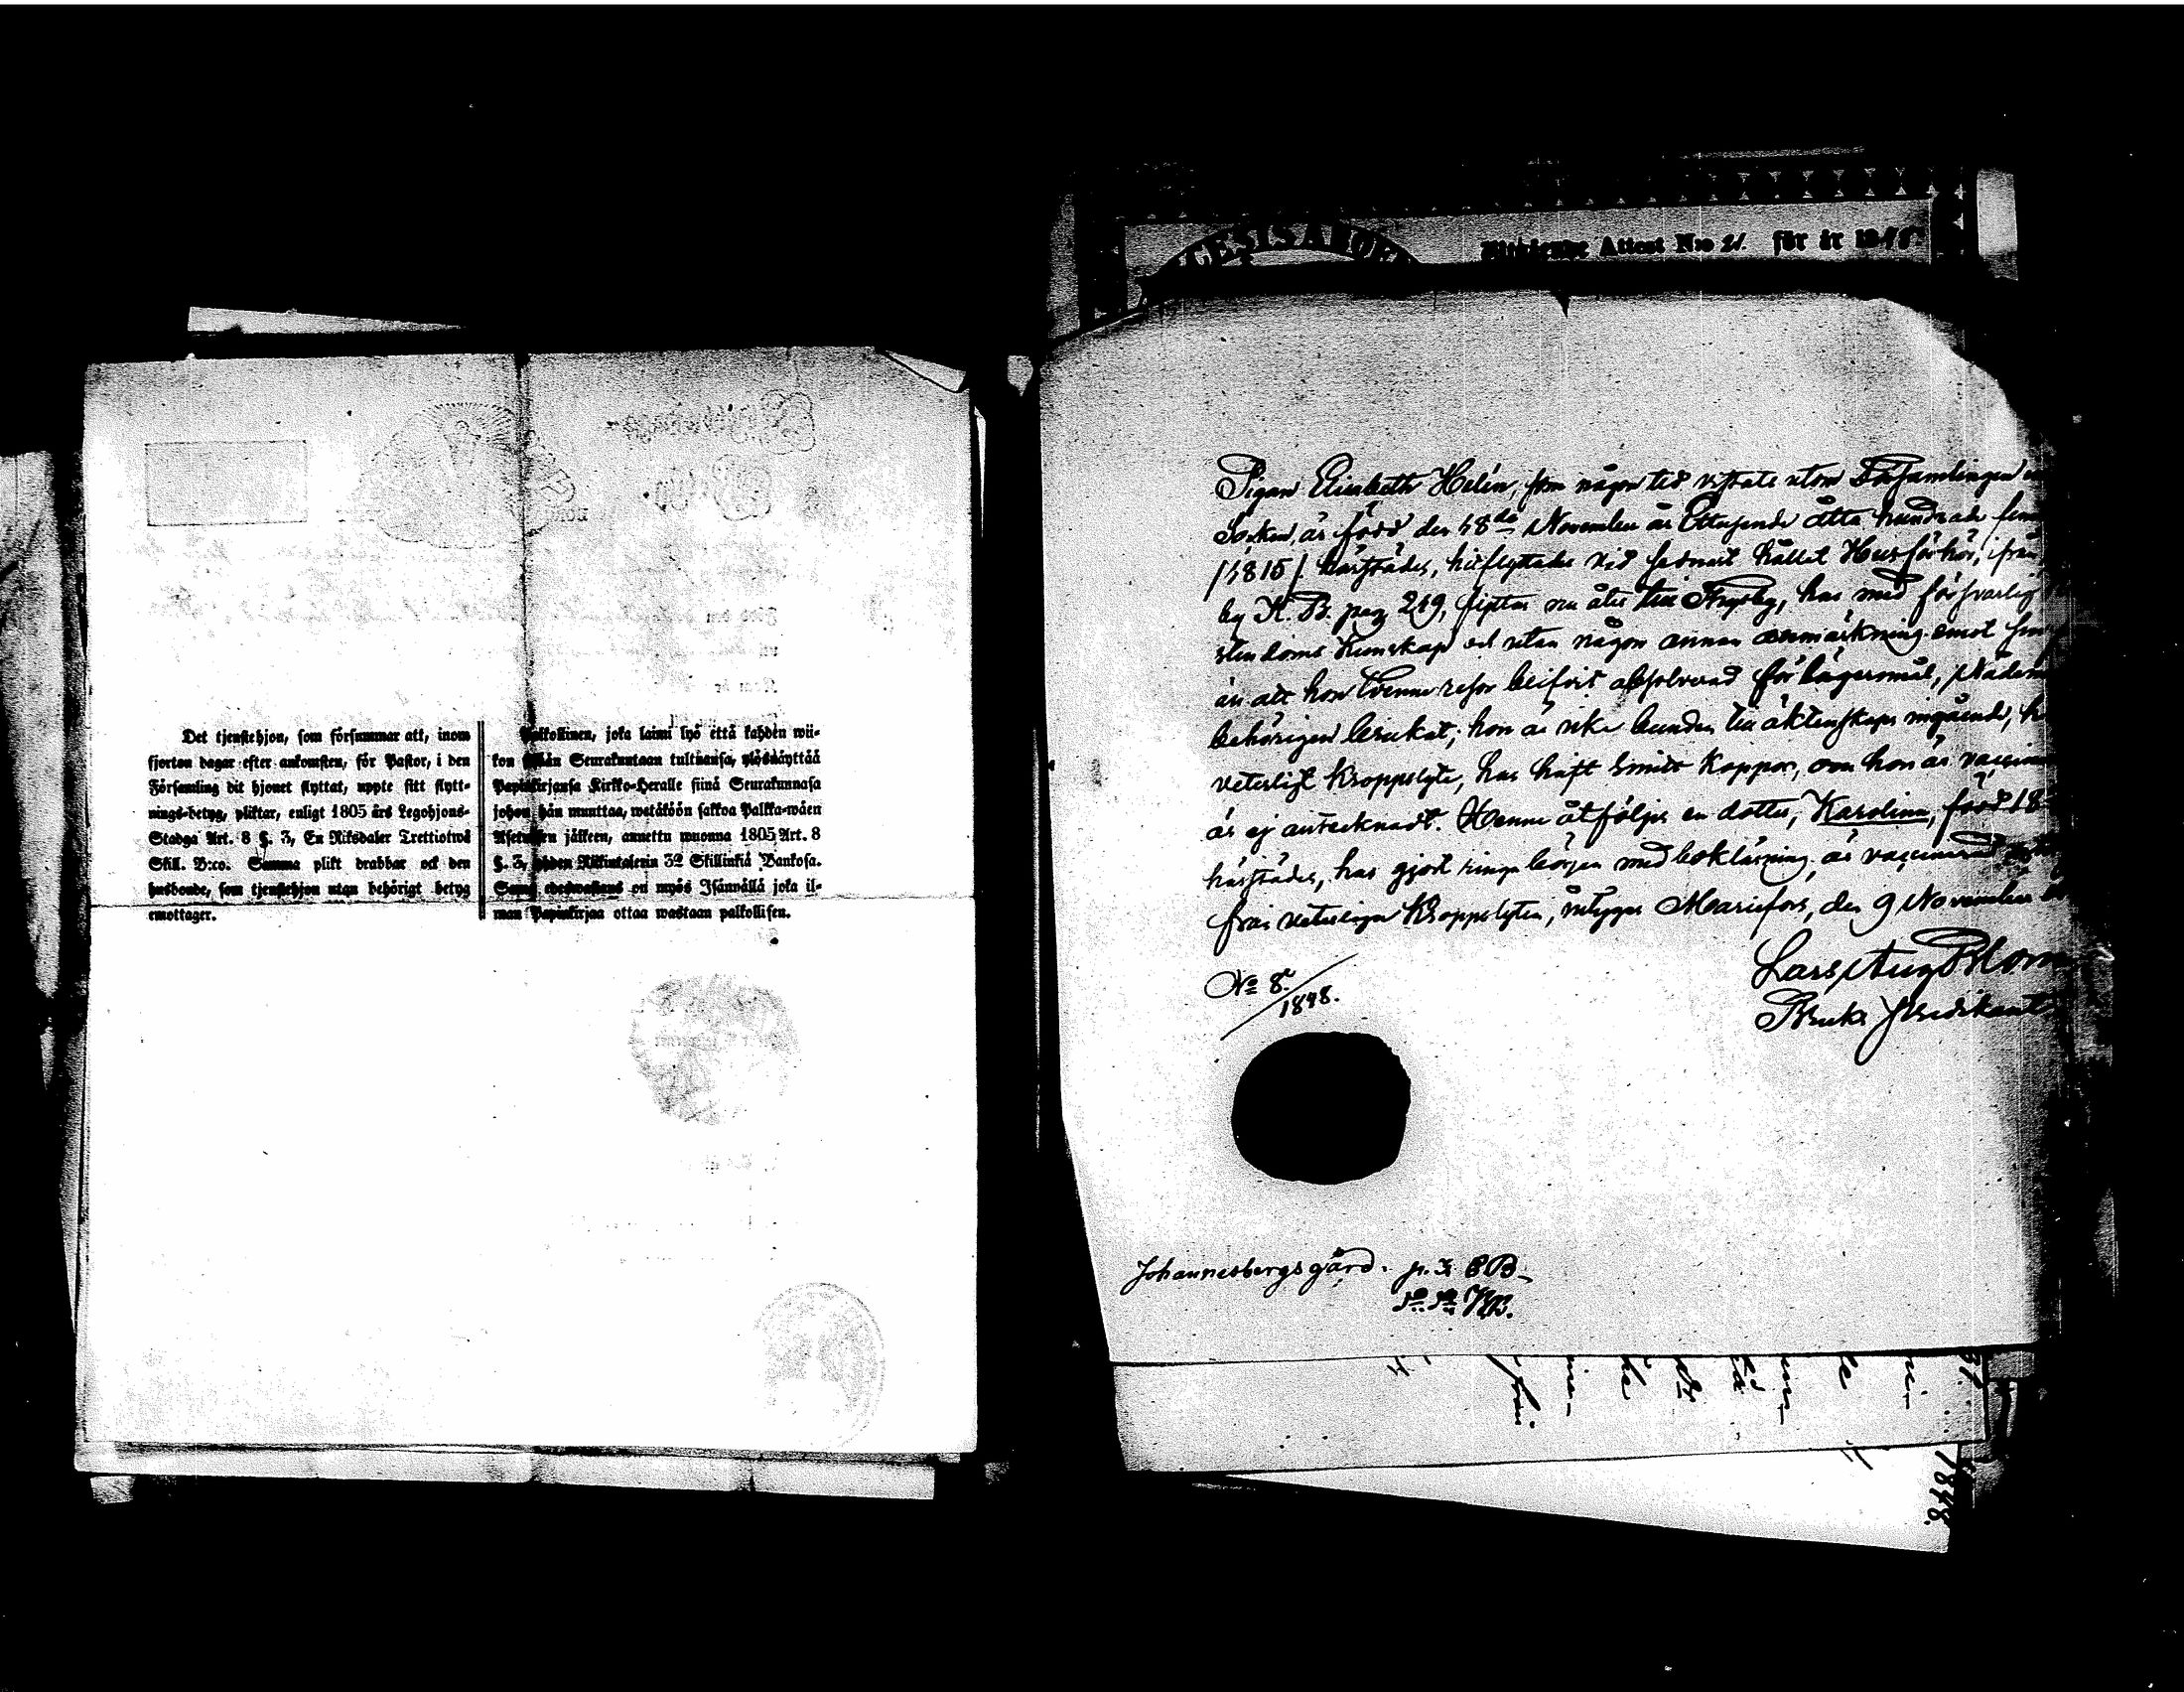 Det tjenstehjon, som försummar att, inom
fjorton dagar efter ankomsten, för Pastor, i den
Församling dit hjonet flyttat, uppte sitt flytt-
nings-betyg, pliktar, enligt 1805 års Legohjons-
Stadga Art. 8 §. 3, En Riksdaler Trettiotwå
Skill. B:co. Samma plikt drabbar ock den
husbonde, som tjenstehjon utan behörigt betyg
emottager.
Palkollinen, joka laimi lyö että kahden wii-
kon Seurakuntaan tultuansa, ylösnäyttää
Papinkirjansa Kirkko-Herralle siinä Seurakunnasa
johon hän muuttaa, wetäköön sakkoa Palkka-wäen
Asetuksen jälkeen, annettu wuonna 1805 Art. 8
§. 3, Riikintalerin 32 Skillinkiä Bankosa.
on myös Isännällä joka il-
man Papinkirjaa ottaa wastaan palkollisen.
Attest N:o 21. för år 18
Pigan Elisabeth Helin, som någon tid vistats utom Församlingen
Socken, är född den 18de November år Ettusende åtta hundrade fem
/1815/ härstädes, hitflyttades vid sednast hållet Husförhör, från
by K. B. pag 219, flyttar nu åter till Frugby, har med försvarlig
stendoms Kunskap och utan någon annan anmärkning emot
än att hon tvenne resor blifvit absolverad för lägersmål, Nadem
behörigen brukat; hon är icke bunden till äktenskaps ingående, h
veterligt Kroppslyte, har haft Smitt Koppor, om hon är vaccin
är ej antecknadt. Henne åtföljer en dotter, Karolina, född 18
härstädes, har gjort ringa början med bokläsning, är vaccinerad
från veterliga Kroppslyten, intygar Mariefors, den 9 November
Lars Aug Blom
Bruks Predikant
No 8.
1848.
Johannesbergs gård. p. 3 CB.
KB.
1848.